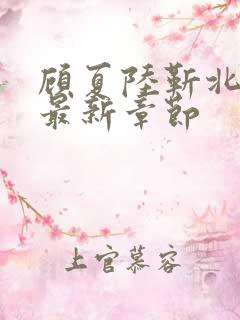 顾夏陆靳北
最新章节
上官慕容